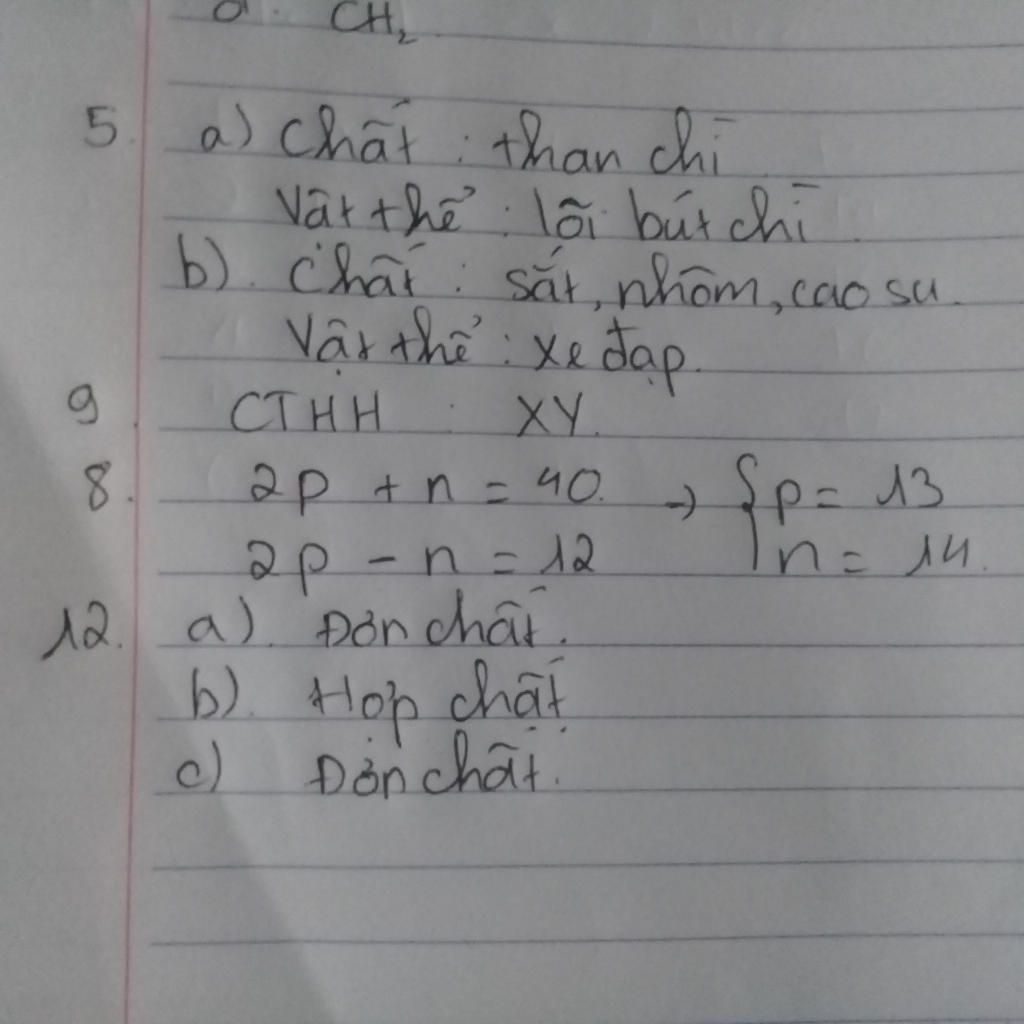 d. CH₂
5. a) Chất : than chì
Vật thể : lõi bút chì.
b). Chất : sắt, nhôm, cao su.
Vật thể : xe đạp.
9 CTHH : XY.
8. 2p + n = 40. → { p = 13
2p - n = 12 n = 14.
12. a). Đơn chất.
b). Hợp chất
c) Đơn chất.